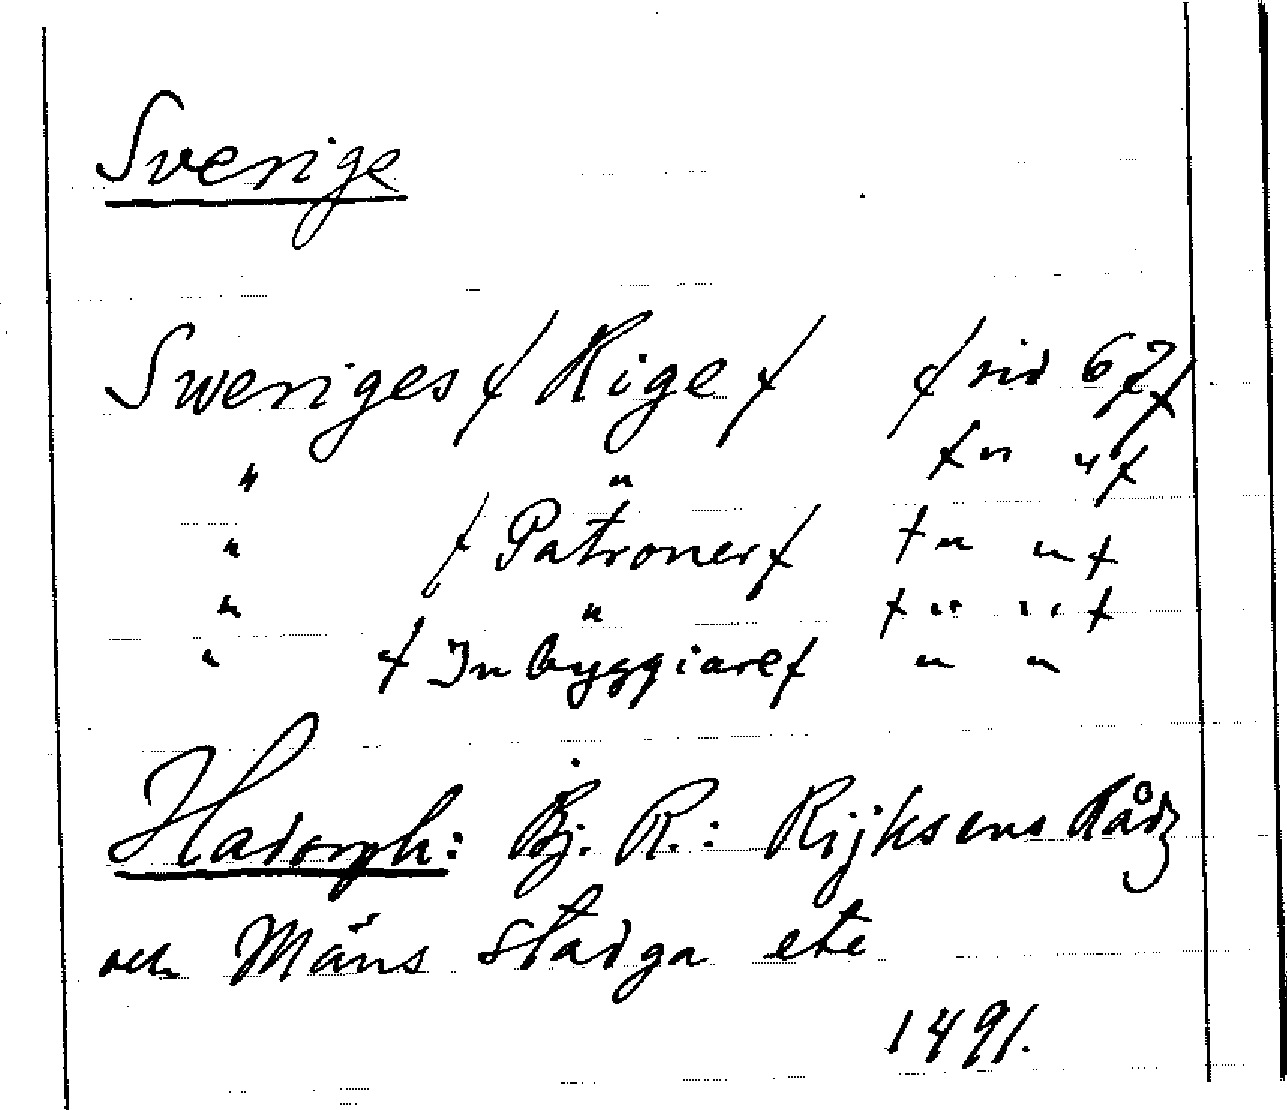 Sverige
Sweriges / Rige / / sid 67/
" " / " " /
" / Patroner / / " " /
" " / " " /
" / Inbyggiare / " "
Hadorph: Bj. R.: Rijksens Rådz
och Mäns stadga etc
1491.